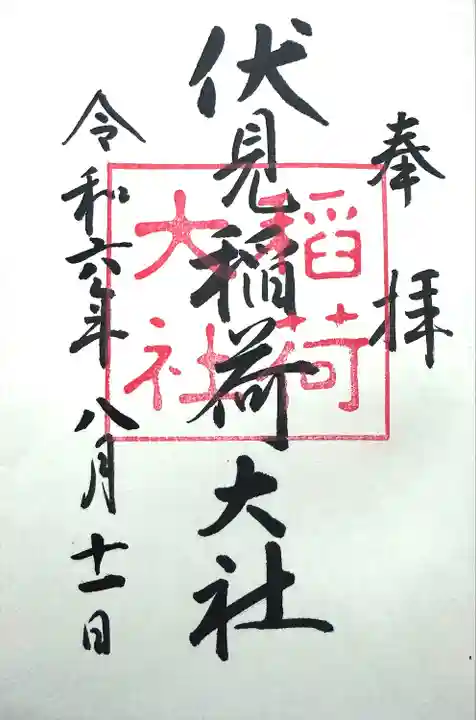 奉拝
伏見稲荷大社
稲荷
大社
令和六年八月十一日